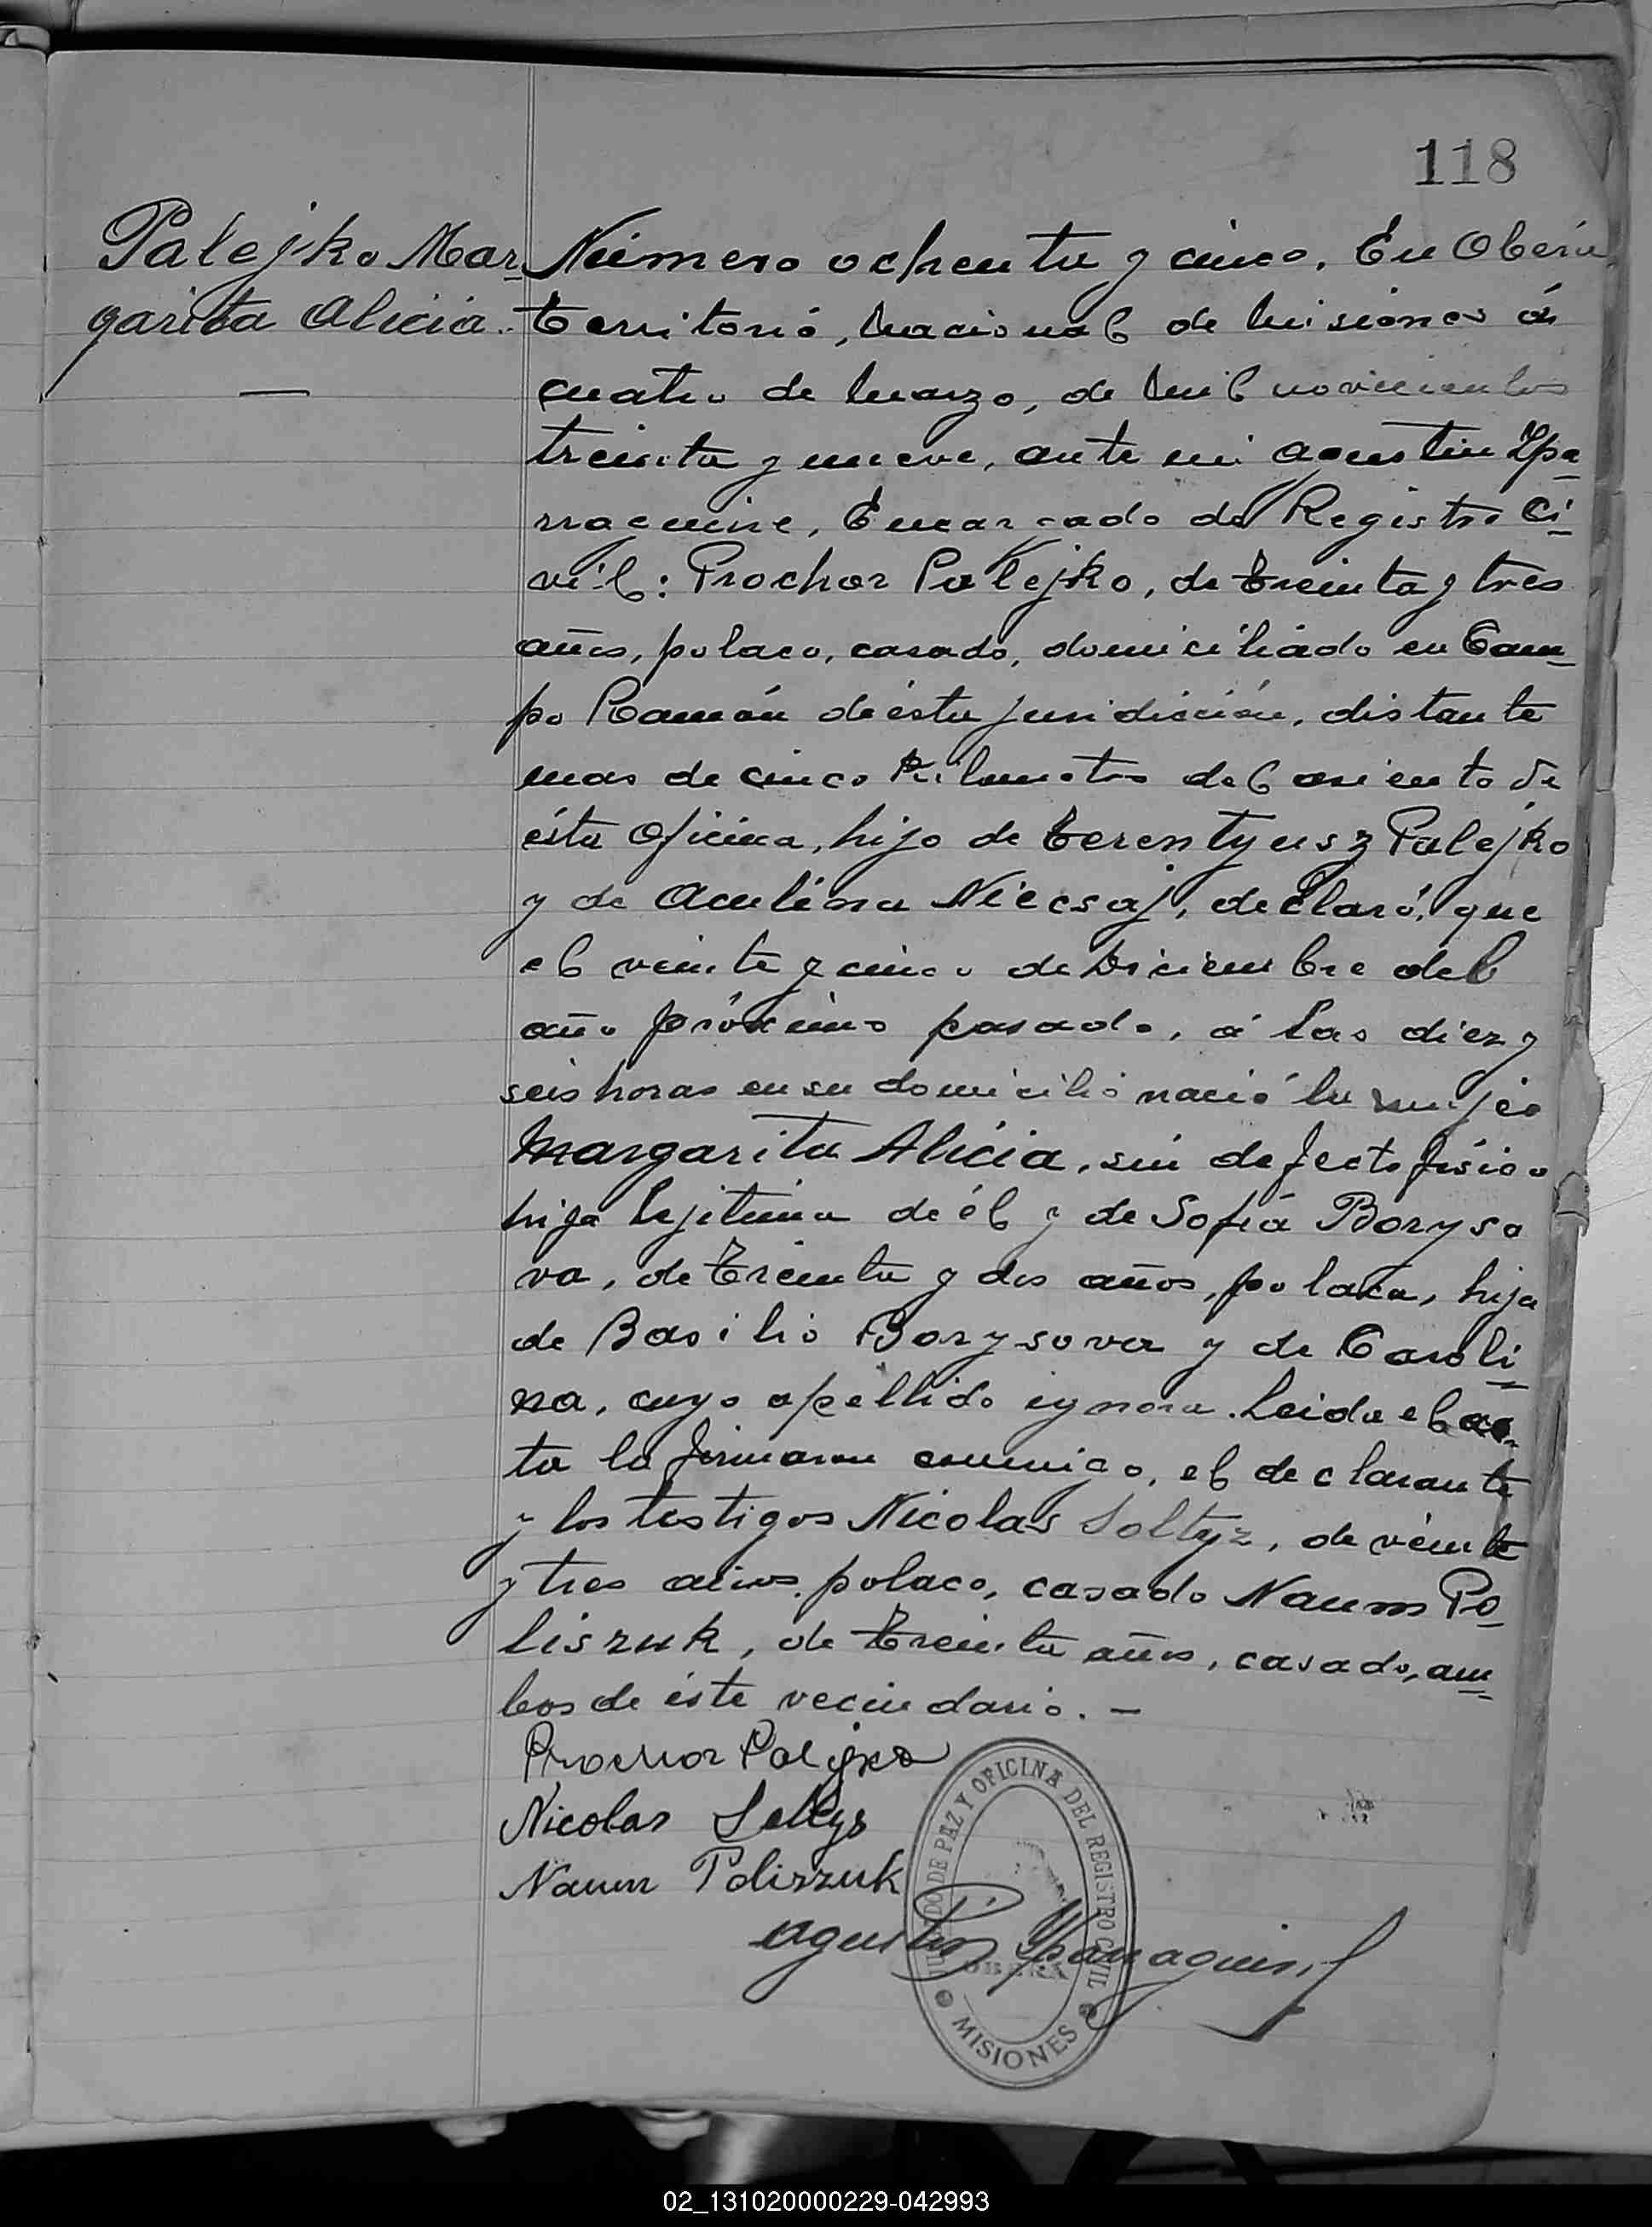 118
Palejko Mar-
garita Alicia.
Número ochenta y cinco. En Oberá
territorio, nacional de Misiones á
cuatro de Marzo, de mil novecientos
treinta y nueve, ante mi Agustin Ypa-
rraguirre, Encargado del Registro Ci-
vil: Prochor Palejko, de treinta y tres
años, polaco, casado, domiciliado en Cam-
po Ramón de ésta juridición, distante
mas de cinco Kilometros del asiento de
ésta Oficina, hijo de Terentyusz Palejko
y de Aculina Niecsaj, declaró, que
el veinte y cinco de Diciembre del
año próximo pasado, á las diez y
seis horas en su domicilio nació la mujer
Margarita Alicia, sin defecto físico
hija lejitima de él y de Sofía Boryso
va, de treinta y dos años, polaca, hija
de Basilio Borysova y de Caroli-
na, cuyo apellido ignora. Leida el ac-
ta la firmaron conmigo, el declarante
y los testigos Nicolas Soltyz, de veinte
y tres años, polaco, casado Naum Po-
liszuk, de treinta años, casado, am-
bos de éste vecindario. —
Prochor Palejko
Nicolas Soltys
Naum Poliszuk
Agustin Yparraguirre
JUZGADO DE PAZ Y OFICINA DEL REGISTRO CIVIL
OBERA
MISIONES
02_131020000229-042993